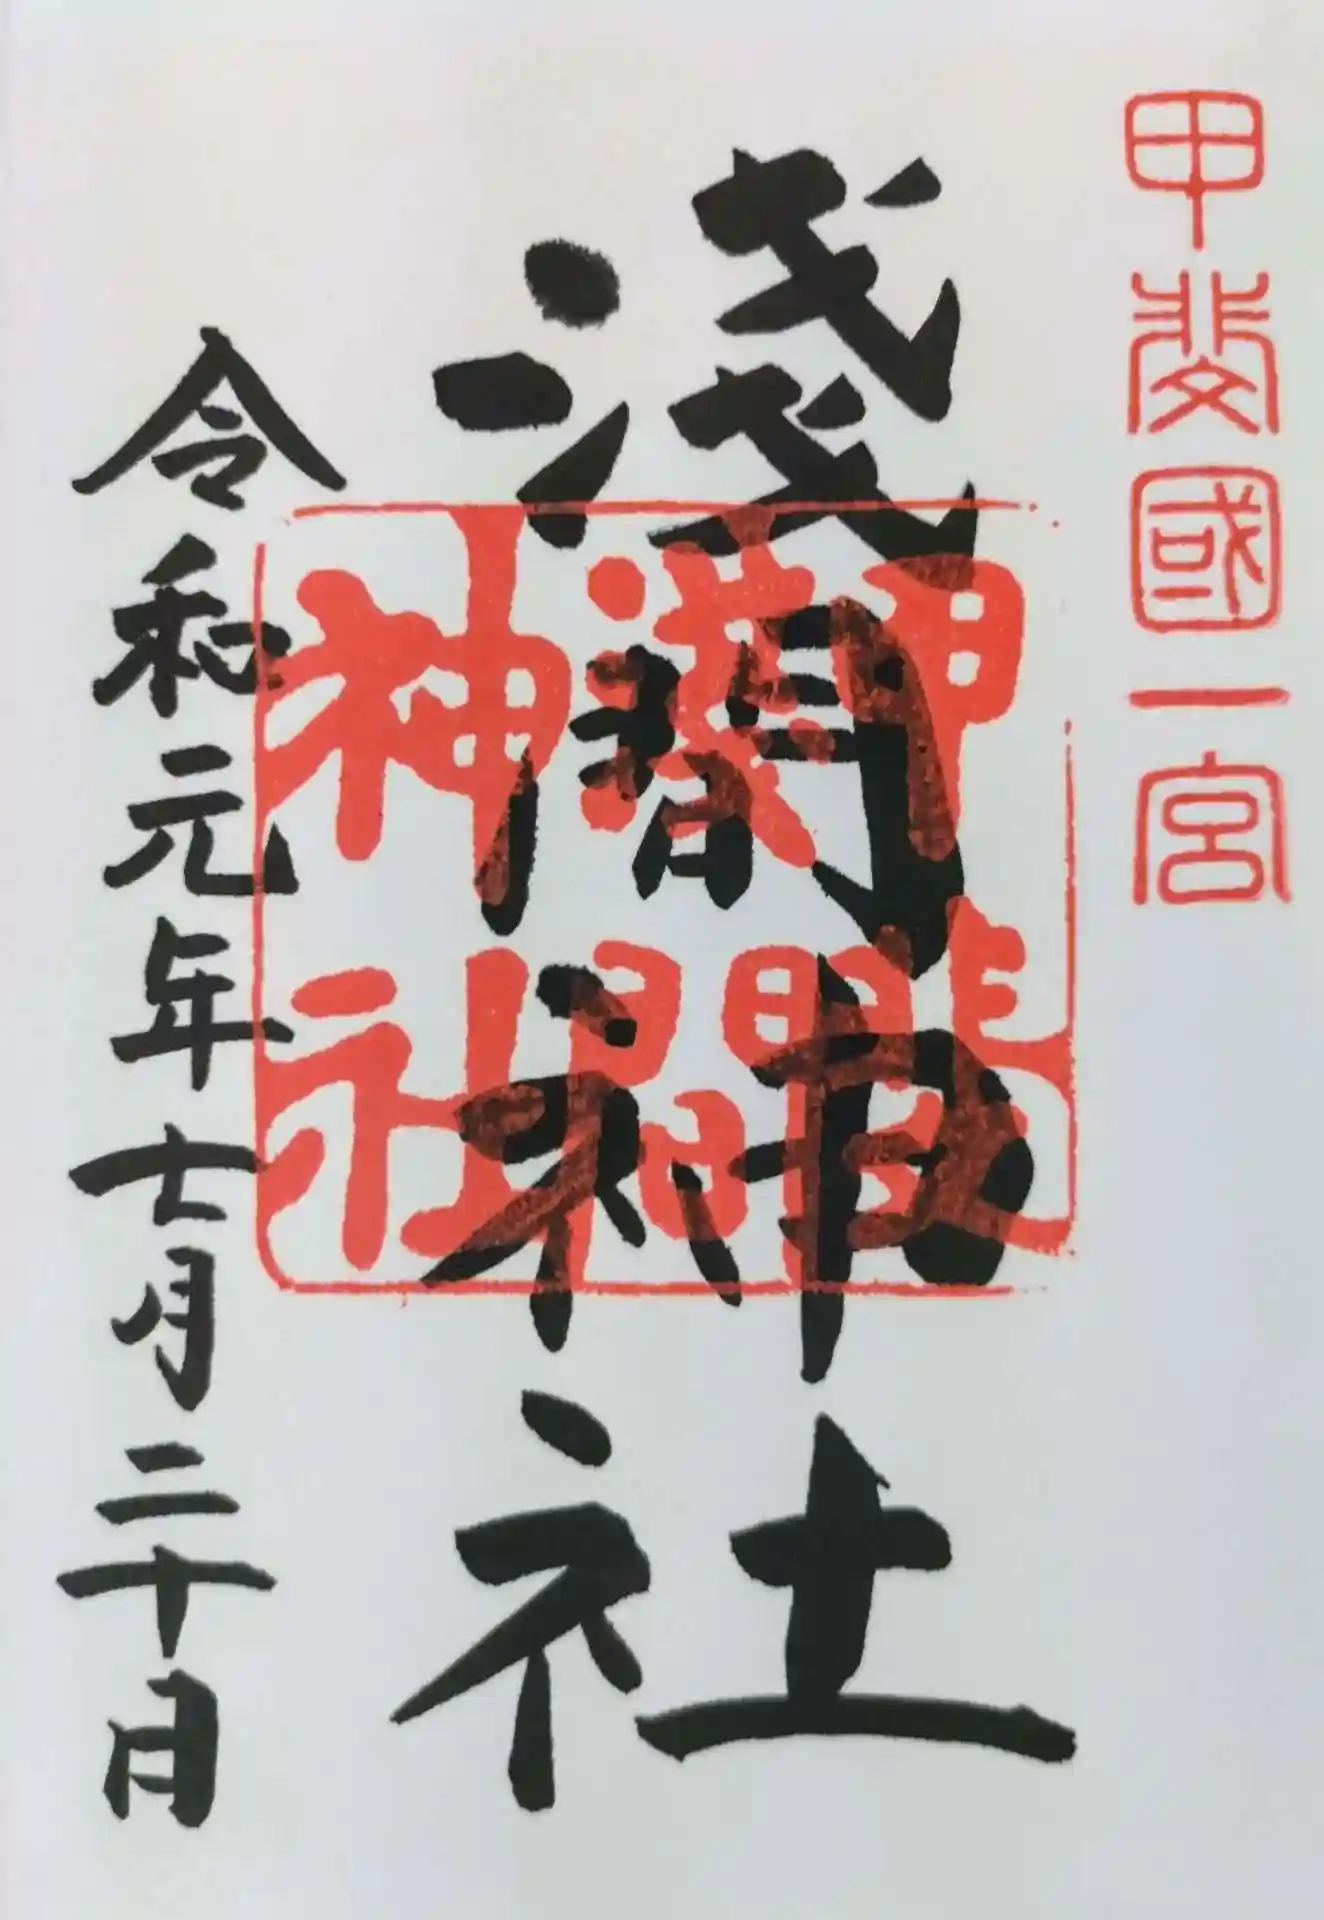 甲斐國一宮
淺間神社
甲斐淺間神社
令和元年七月二十日